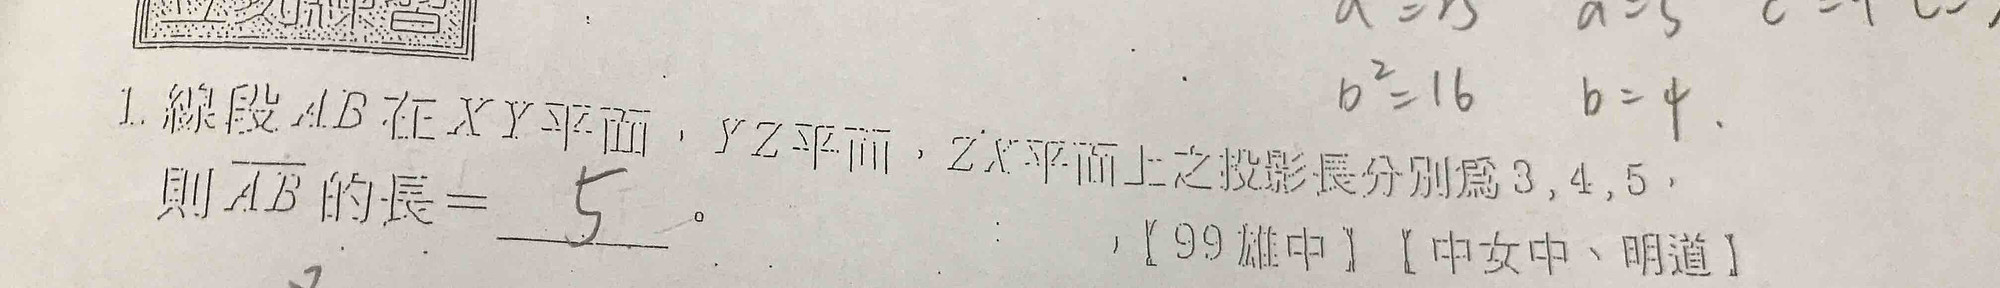 b²=16 b=4.
1. 線段AB在XY平面，YZ平面，ZX平面上之投影長分別為3,4,5，
則AB的長=5。
【99雄中】【中女中、明道】